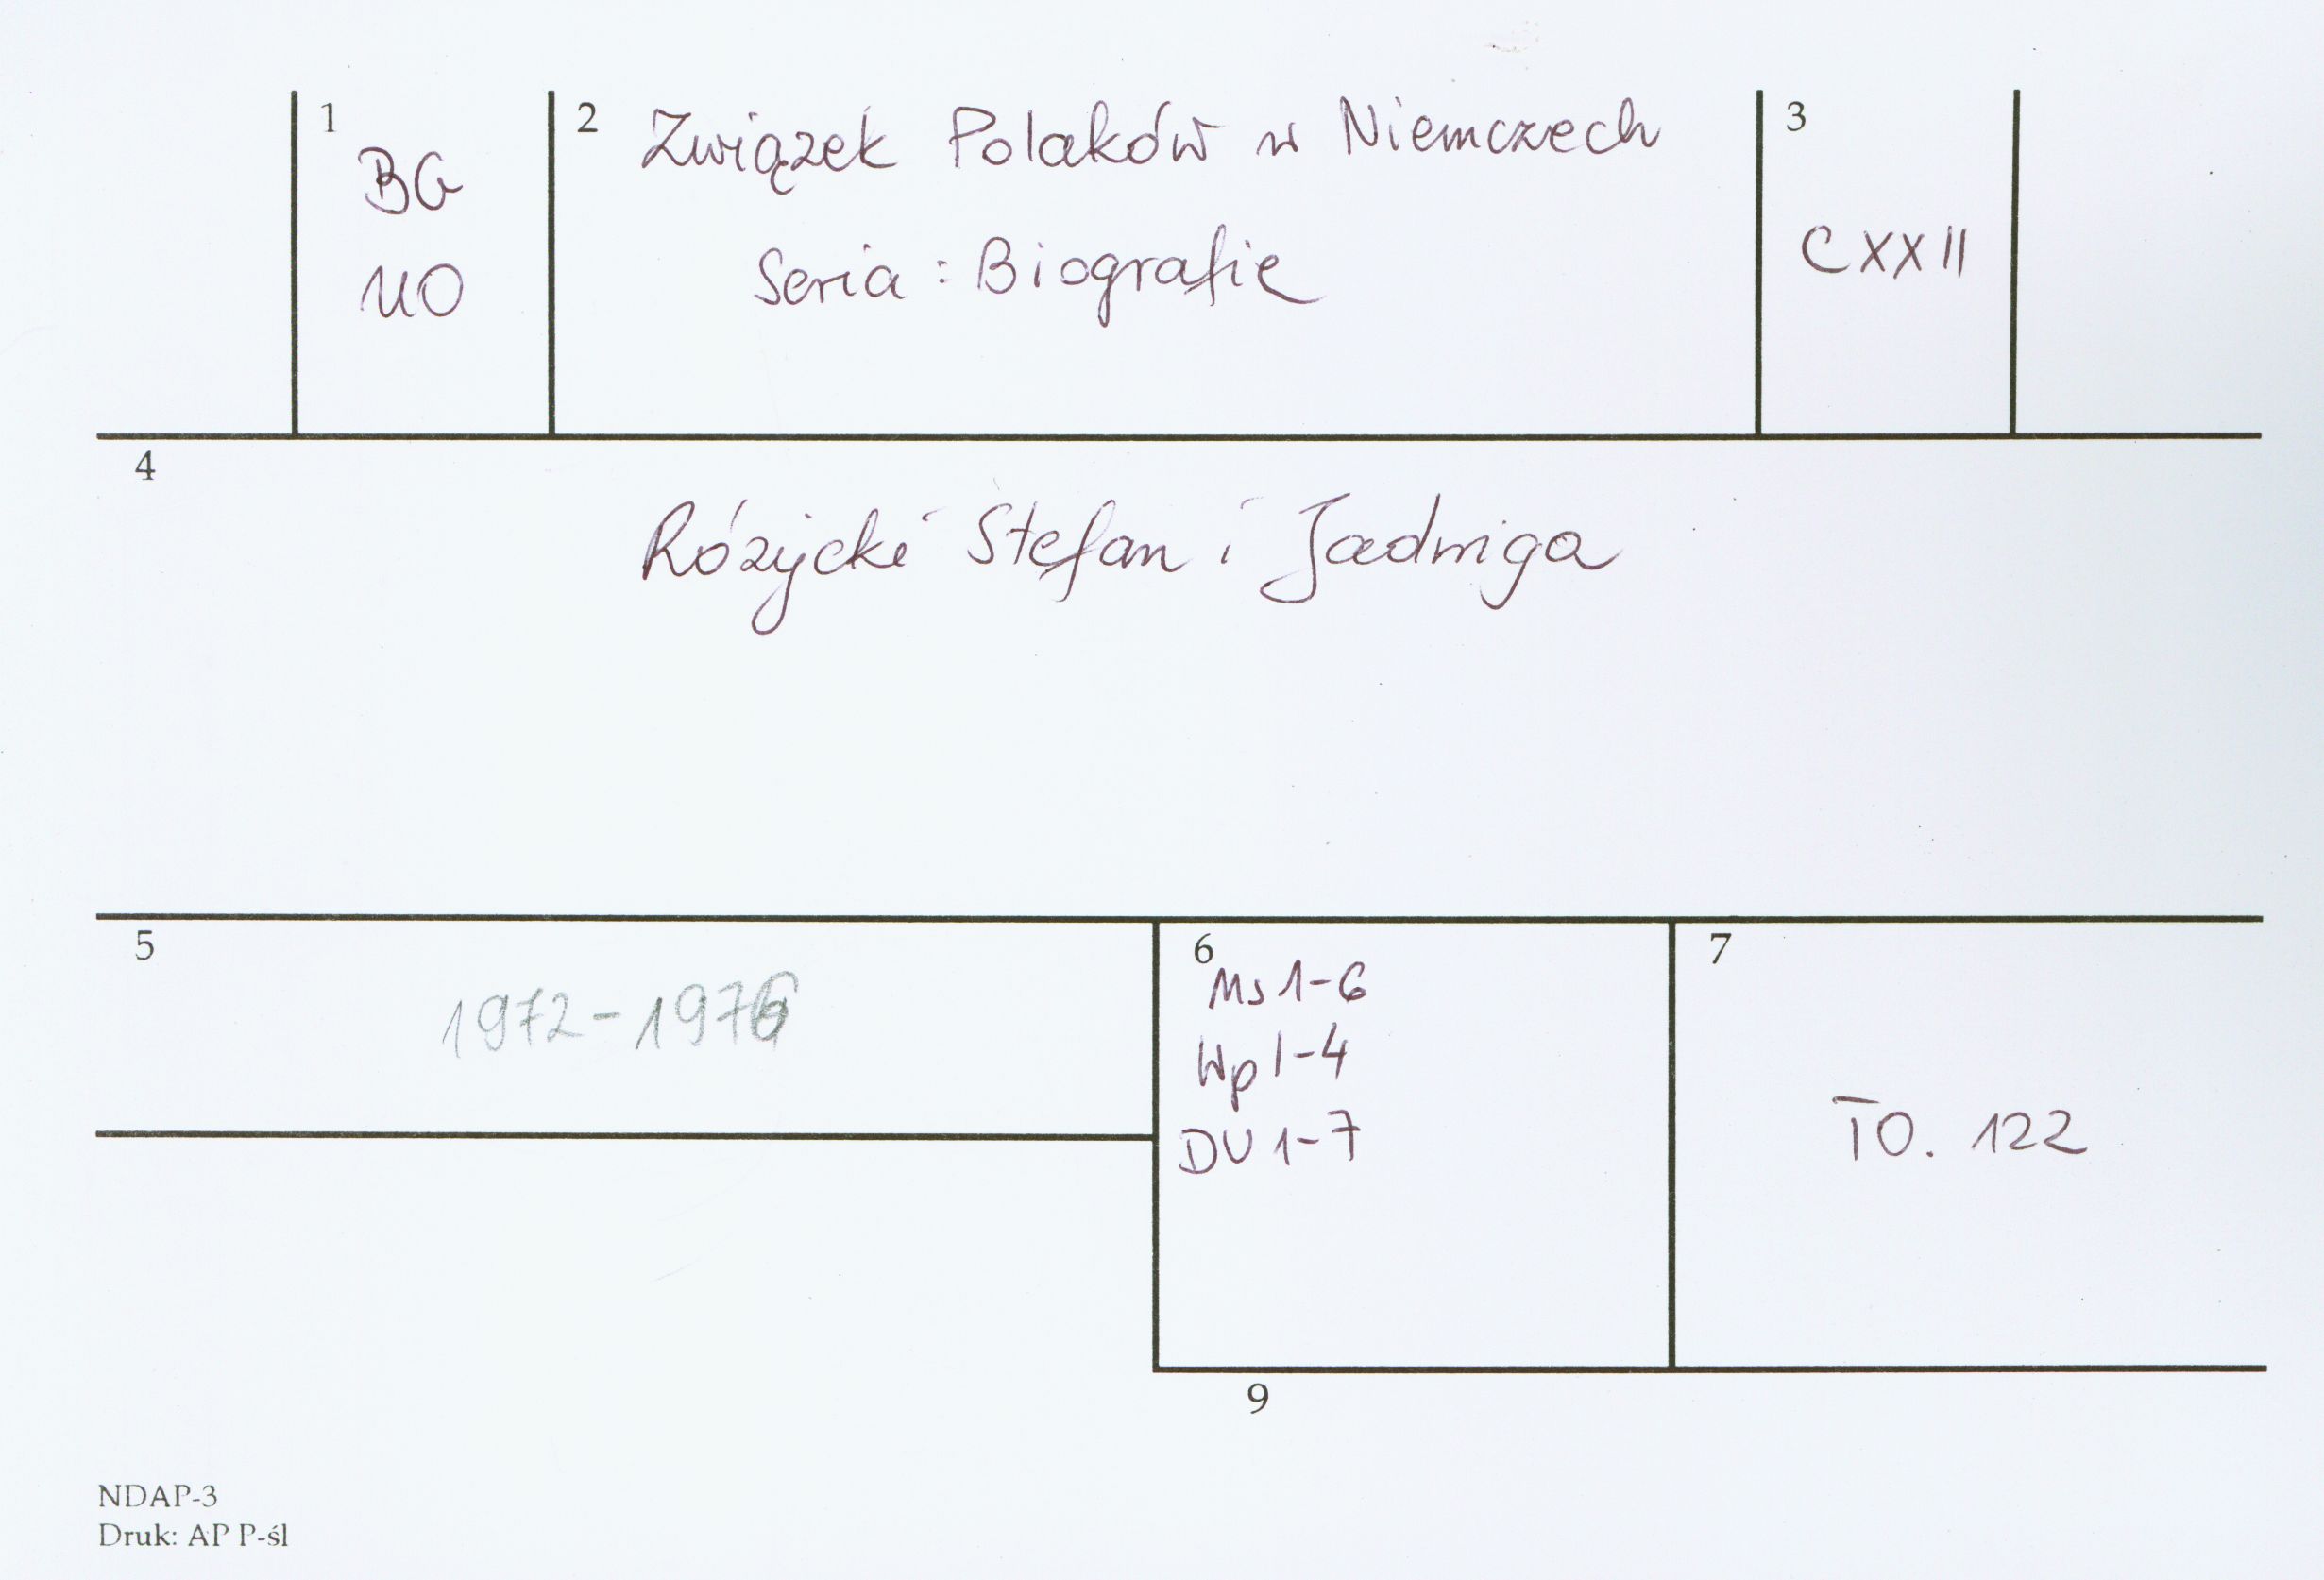 1
BG
UO
2
Związek Polaków w Niemczech
Seria: Biografie
3
CXXII
4
Różycki Stefan i Jadwiga
5
1972-1976
6
Ms 1-6
Wp 1-4
DU 1-7
7
TO. 122
9
NDAP-3
Druk: AP P-śl